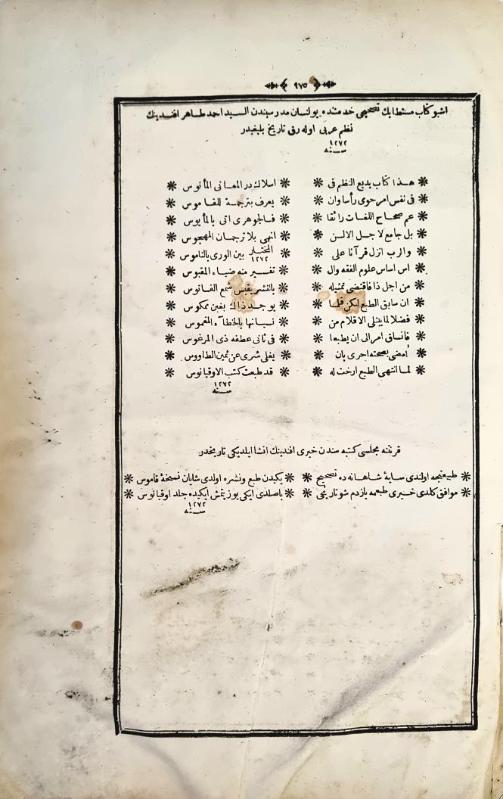 ٩٧٥
اشبو كتاب مستطابك تصحيحى خدمتنده بولنان مدرسيندن السيد احمد طاهر افندينك
نظم عربى اوله رق تاريخ بليغيدر
١٢٧٢
سنه
هذا كتاب بديع النظم فى * اسلاك در المعانى المأنوس
فى نفس امر حوى رأساوان * يعرف بترجمة للقاموس
عم صحاح اللغات رائقا * فالجوهرى اتى بالمأيوس
بل جامع لاجل الالسن * انهى بلا ترجمان المهجوس
وازب انزل قرآنا على * المختار بين الورى بالناموس
١٢٧٢
اس اساس علوم الفقه وال * تفسير منه ضياء المقبوس
من اجل ذا فاقتضى تمثيله * بالنشر
ان سابق الطبع لكن قلما * يوجد ذاك بغين مكوس
فضلا لما يتلى الاقلام من * نسيانها بالخطأ
فانساق امر الى ان يطبعا * فى ثانى عطفه ذى المرغوس
امضى بصحته اجرى بان * يغلى شرى عن ثمين الطاووس
لما انتهى الطبع ارخت له * قد طبعت كتب الاوقيانوس
١٢٧٢
سنه
قرنتنه مجلسى كتبه سندن خيرى افندينك انشا ايلديكى تاريخدر
طبع نتيجه اولندى سايهٔ شاهانه ده تصحيح * يكيدن طبع ونشره اولدى شايان نسخهٔ قاموس
موافق كلدى خيرى طبعمه يازدم شو تاريخى * باصلدى ايكى يوز يتمش ايكيده جلد اوقيانوس
١٢٧٢
سنه